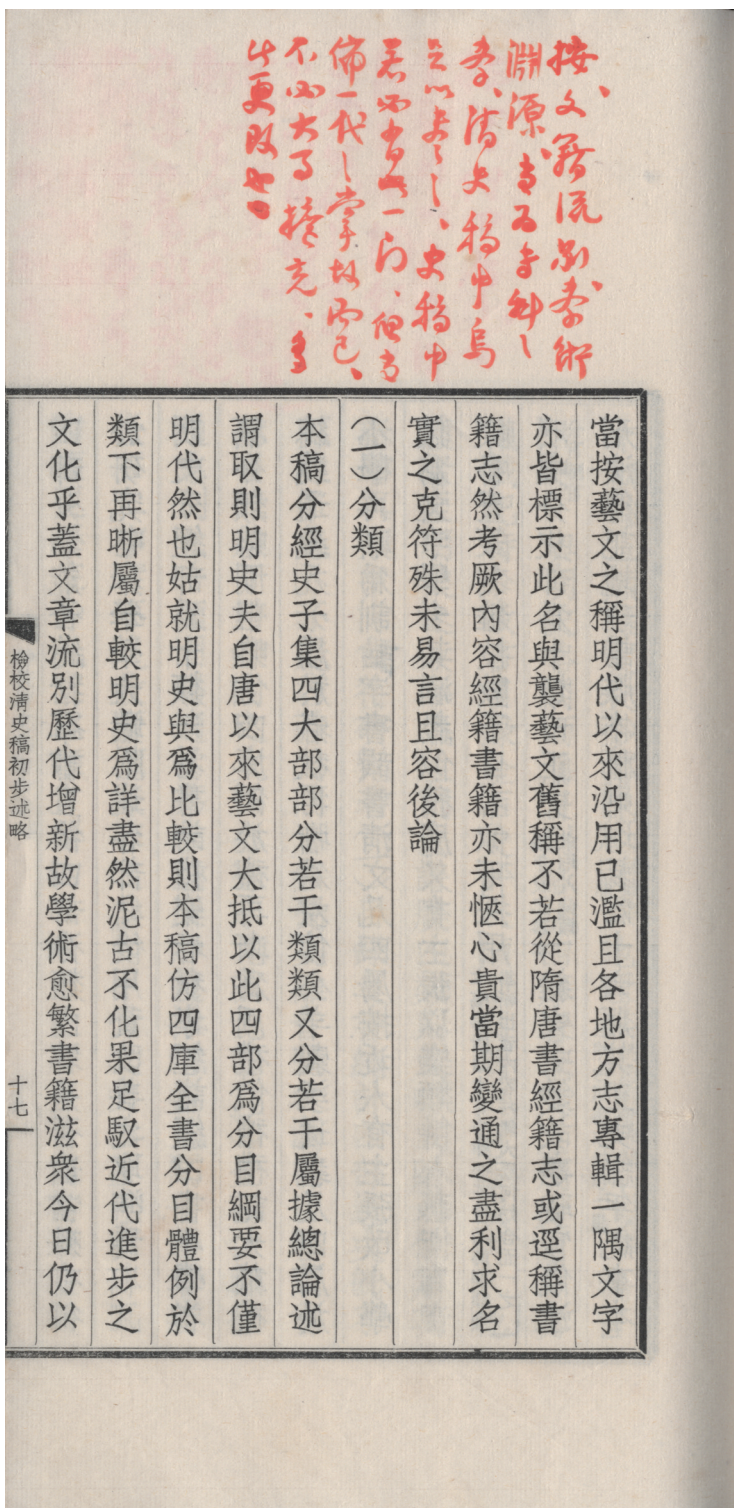 按、文籍流別、學術
淵源、當爲專科之
學、清史稿中烏
足以盡之、史稿中
若必當此一門、但當
備一代之掌故而已、
不必大事擴充、多
此更改也
當按藝文之稱明代以來沿用已濫且各地方志專輯一隅文字
亦皆標示此名與襲藝文舊稱不若從隋唐書經籍志或逕稱書
籍志然考厥內容經籍書籍亦未愜心貴當期變通之盡利求名
實之克符殊未易言且容後論
(一)分類
本稿分經史子集四大部部分若干類類又分若干屬據總論述
謂取則明史夫自唐以來藝文大抵以此四部爲分目綱要不僅
明代然也姑就明史與爲比較則本稿仿四庫全書分目體例於
類下再晰屬自較明史爲詳盡然泥古不化果足馭近代進步之
文化乎蓋文章流別歷代增新故學術愈繁書籍滋衆今日仍以
檢校清史稿初步述略
十七